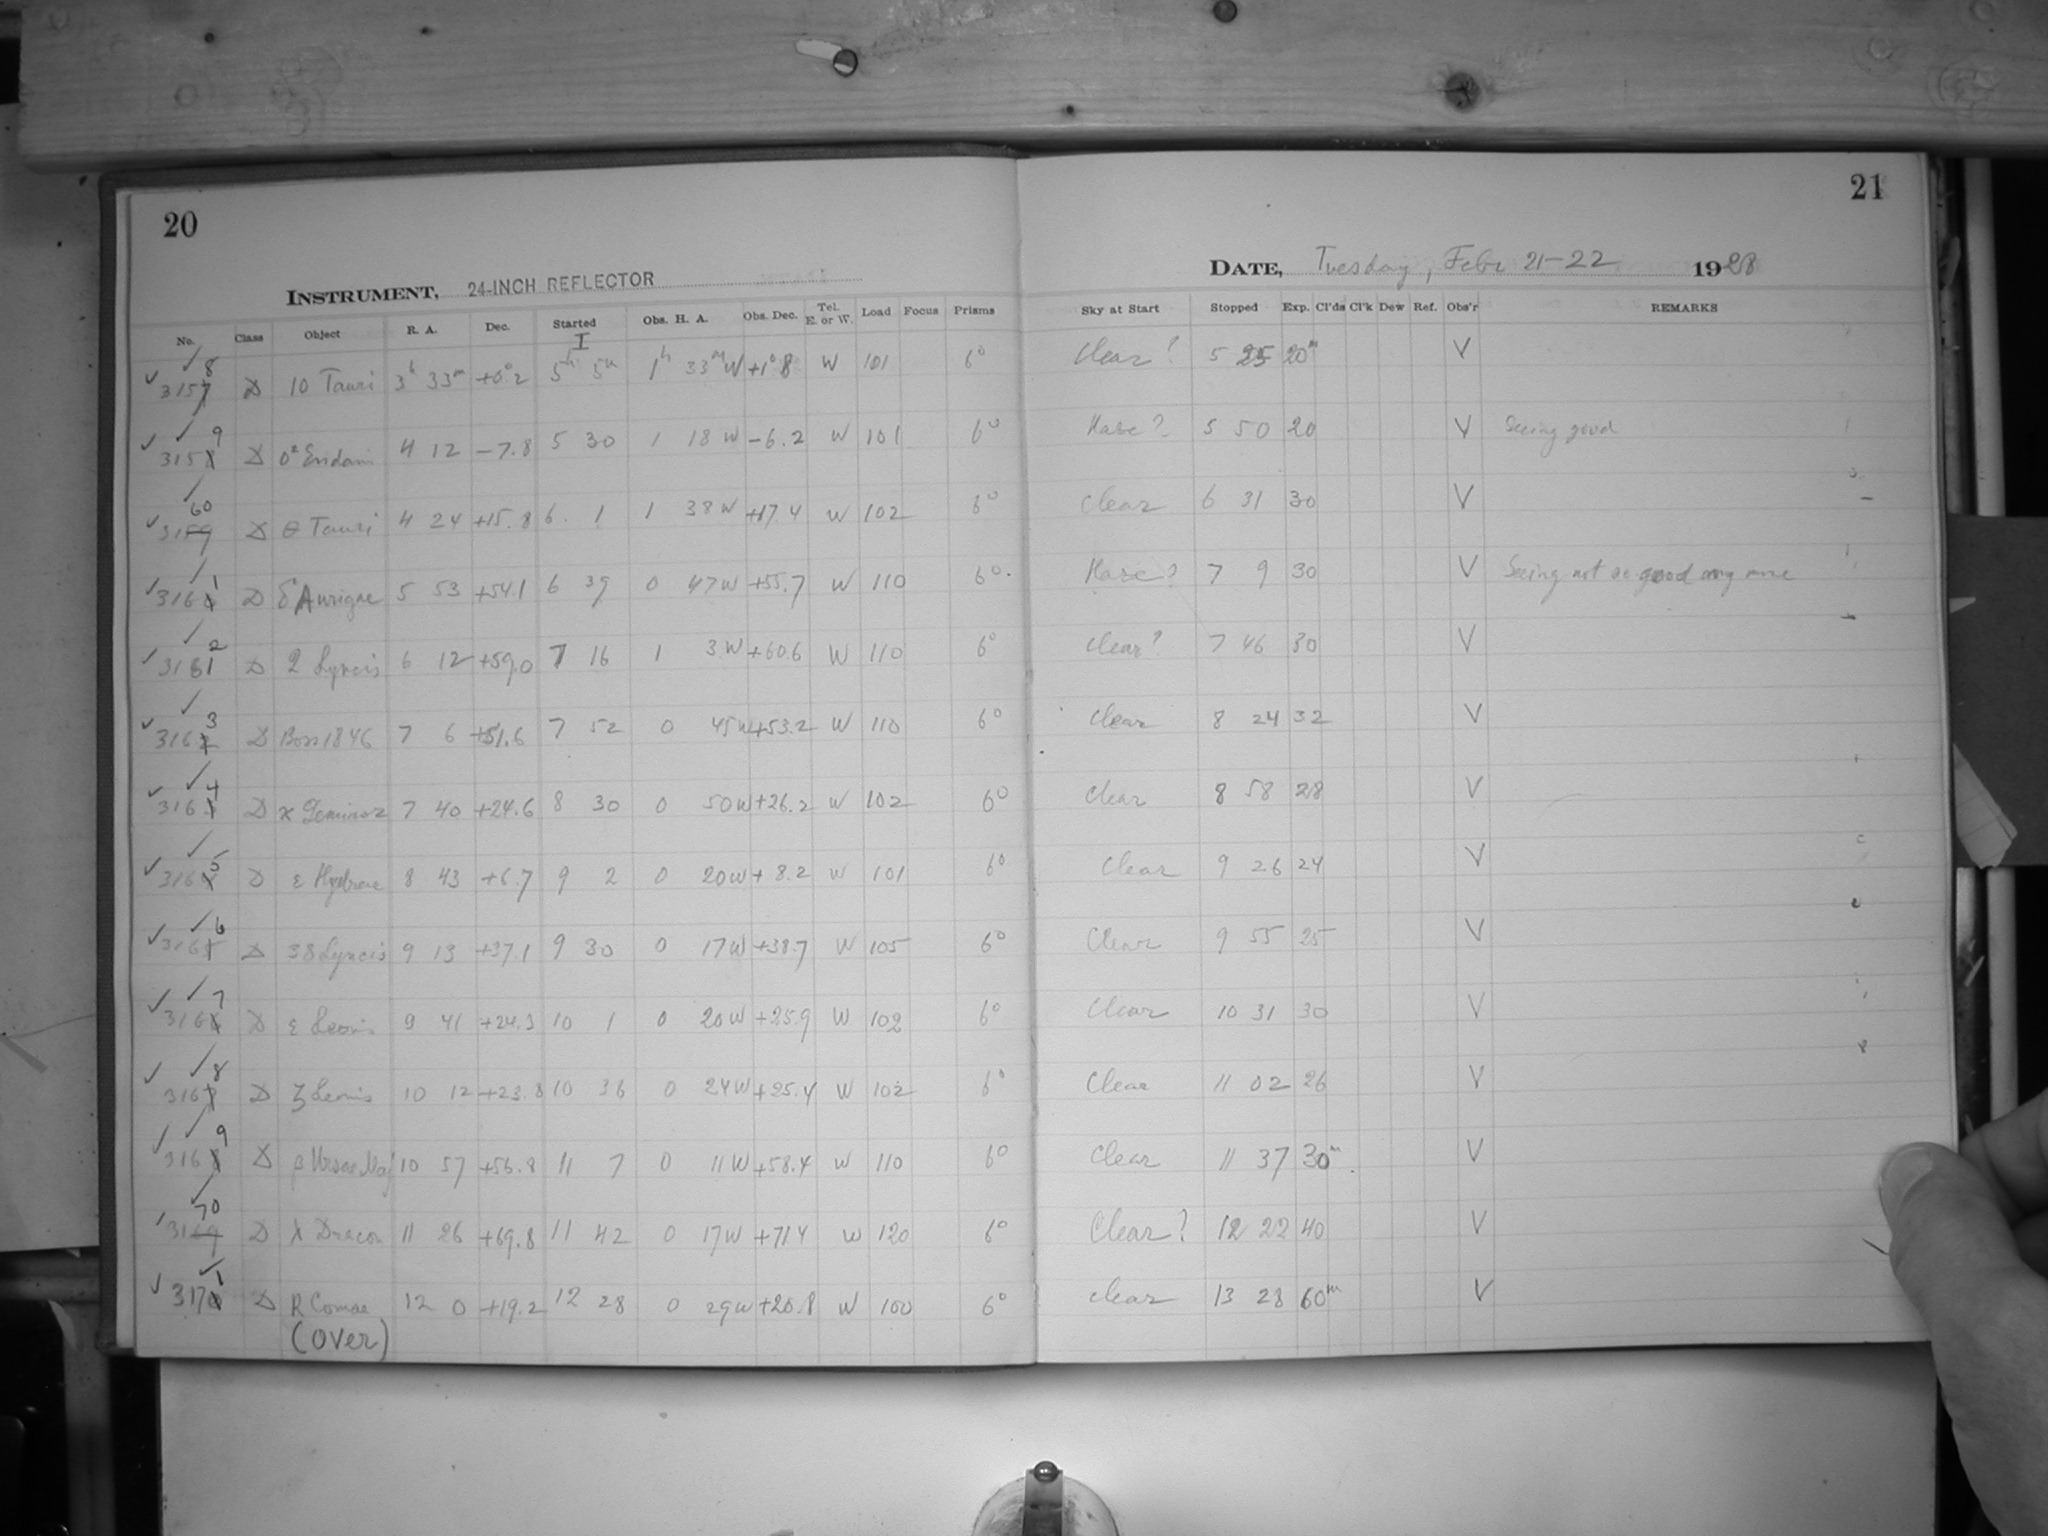 20
INSTRUMENT, 24-INCH REFLECTOR
No. Class Object R. A. Dec. Started Obs. H. A. Obs. Dec. Tel. E. or W. Load Focus Prisms
I
3158 D 10 Tauri 3h 33m +0°2 5h 5m 1h 33m W +1°8 W 101 6°
3159 D o² Eridani 4 12 -7.8 5 30 1 18 W -6.2 W 101 6°
3160 D θ Tauri 4 24 +15.8 6 1 1 38 W +17.4 W 102 6°
3161 D δ Aurigae 5 53 +54.1 6 39 0 47 W +55.7 W 110 6°
3162 D 2 Lyncis 6 12 +59.0 7 16 1 3 W +60.6 W 110 6°
3163 D Boss 1846 7 6 +51.6 7 52 0 45 W +53.2 W 110 6°
3164 D κ Geminor 7 40 +24.6 8 30 0 50 W +26.2 W 102 6°
3165 D ε Hydrae 8 43 +6.7 9 2 0 20 W +8.2 W 101 6°
3166 D 38 Lyncis 9 13 +37.1 9 30 0 17 W +38.7 W 105 6°
3167 D ε Leonis 9 41 +24.3 10 1 0 20 W +25.9 W 102 6°
3168 D ζ Leonis 10 12 +23.8 10 36 0 24 W +25.4 W 102 6°
3169 D β Ursae Maj 10 57 +56.8 11 7 0 11 W +58.4 W 110 6°
3170 D λ Dracon 11 26 +69.8 11 42 0 17 W +71.4 W 120 6°
3171 D R Comae 12 0 +19.2 12 28 0 29 W +20.8 W 100 6°
(over)
21
DATE, Tuesday, Febr 21-22 1928
Sky at Start Stopped Exp. Cl'ds Cl'k Dew Ref. Obs'r REMARKS
Clear? 5 25 20m V
Haze? 5 50 20 V Seeing good
Clear 6 31 30 V
Haze? 7 9 30 V Seeing not so good any more
Clear? 7 46 30 V
Clear 8 24 32 V
Clear 8 58 28 V
Clear 9 26 24 V
Clear 9 55 25 V
Clear 10 31 30 V
Clear 11 02 26 V
Clear 11 37 30m V
Clear? 12 22 40 V
Clear 13 28 60m V